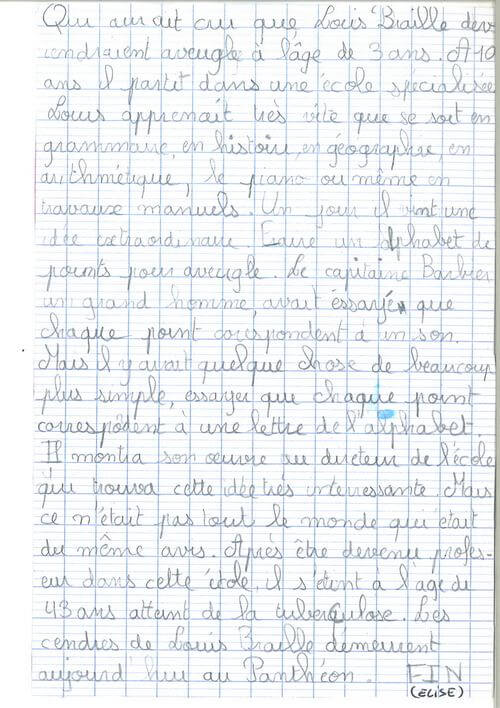 Qui aurait cru que Louis Braille dev
iendraient aveugle à l'âge de 3 ans. A 10
ans il partit dans une école spécialisée
Louis apprenait très vite que se soit en
grammaire, en histoire, en géographie, en
arithmétique, le piano ou même en
travaux manuels. Un jour il vint une
idée extraordinaire. Ecrire un alphabet de
points pour aveugle. Le capitaine Barbier
un grand homme, avait éssayé que
chaque point correspondent à un son.
Mais il y avait quelque chose de beaucoup
plus simple, essayer que chaque point
correspondent à une lettre de l'alphabet.
Il montra son œuvre au directeur de l'école
qui trouva cette idée très interressante. Mais
ce n'était pas tout le monde qui était
du même avis. Après être devenu profes-
eur dans cette école, il s'éteint à l'age de
43 ans atteint de la tuberculose. Les
cendres de Louis Braille demeurent
aujourd'hui au Panthéon. FIN
(ELISE)